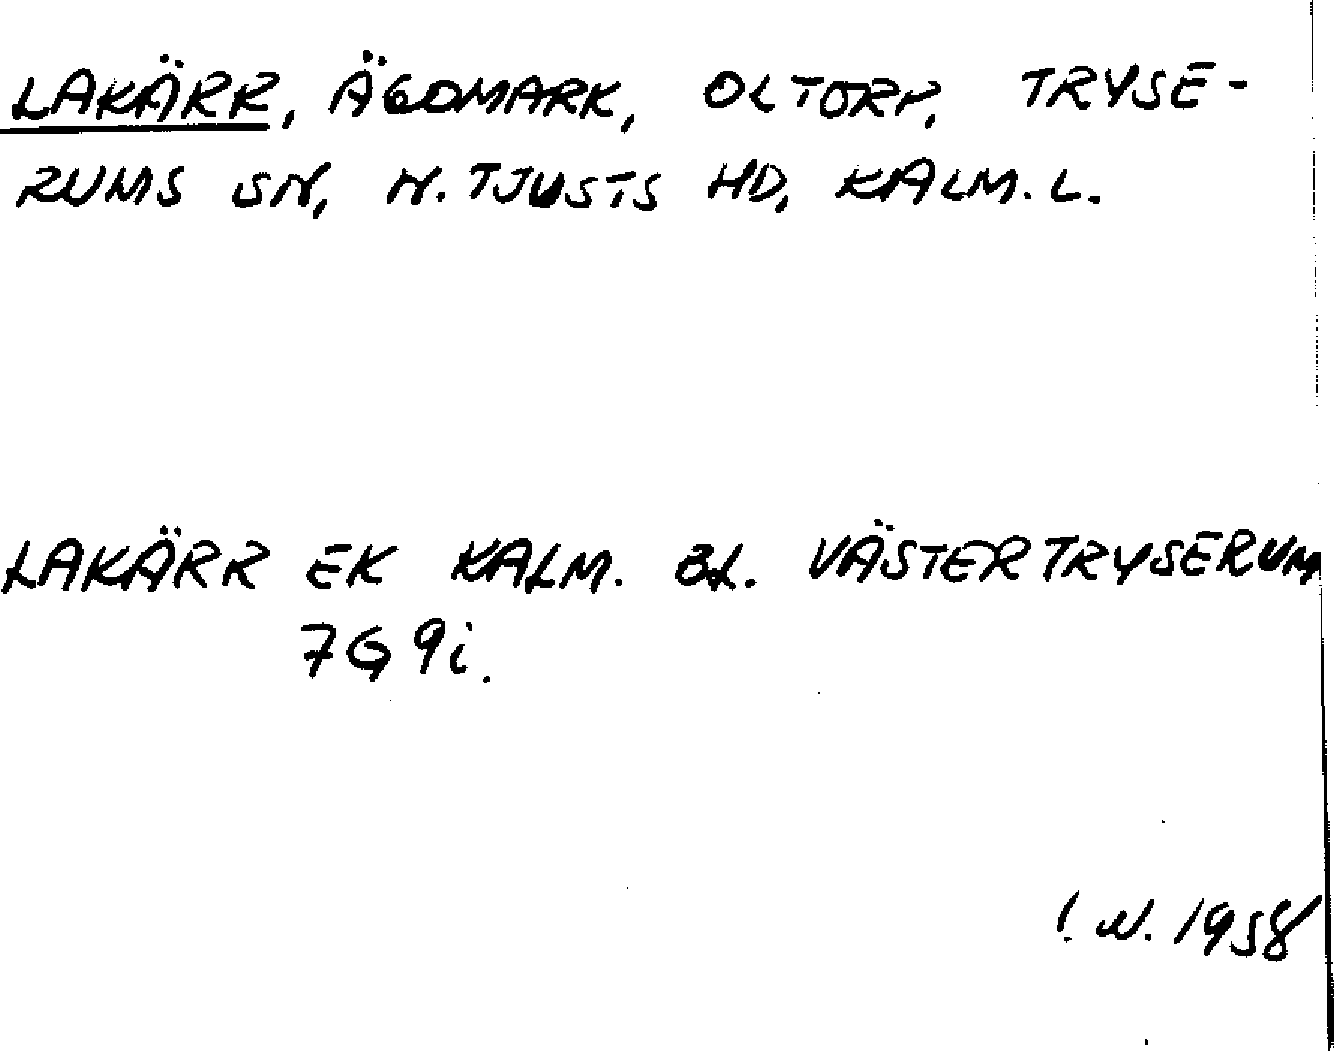 LAKÄRR, ÄGOMARK, OLTORP, TRYSE-
RUMS SN, N. TJUSTS HD, KALM. L.
LAKÄRR EK KALM. BL. VÄSTERTRYSERUM
7G 9i.
I. N. 1958